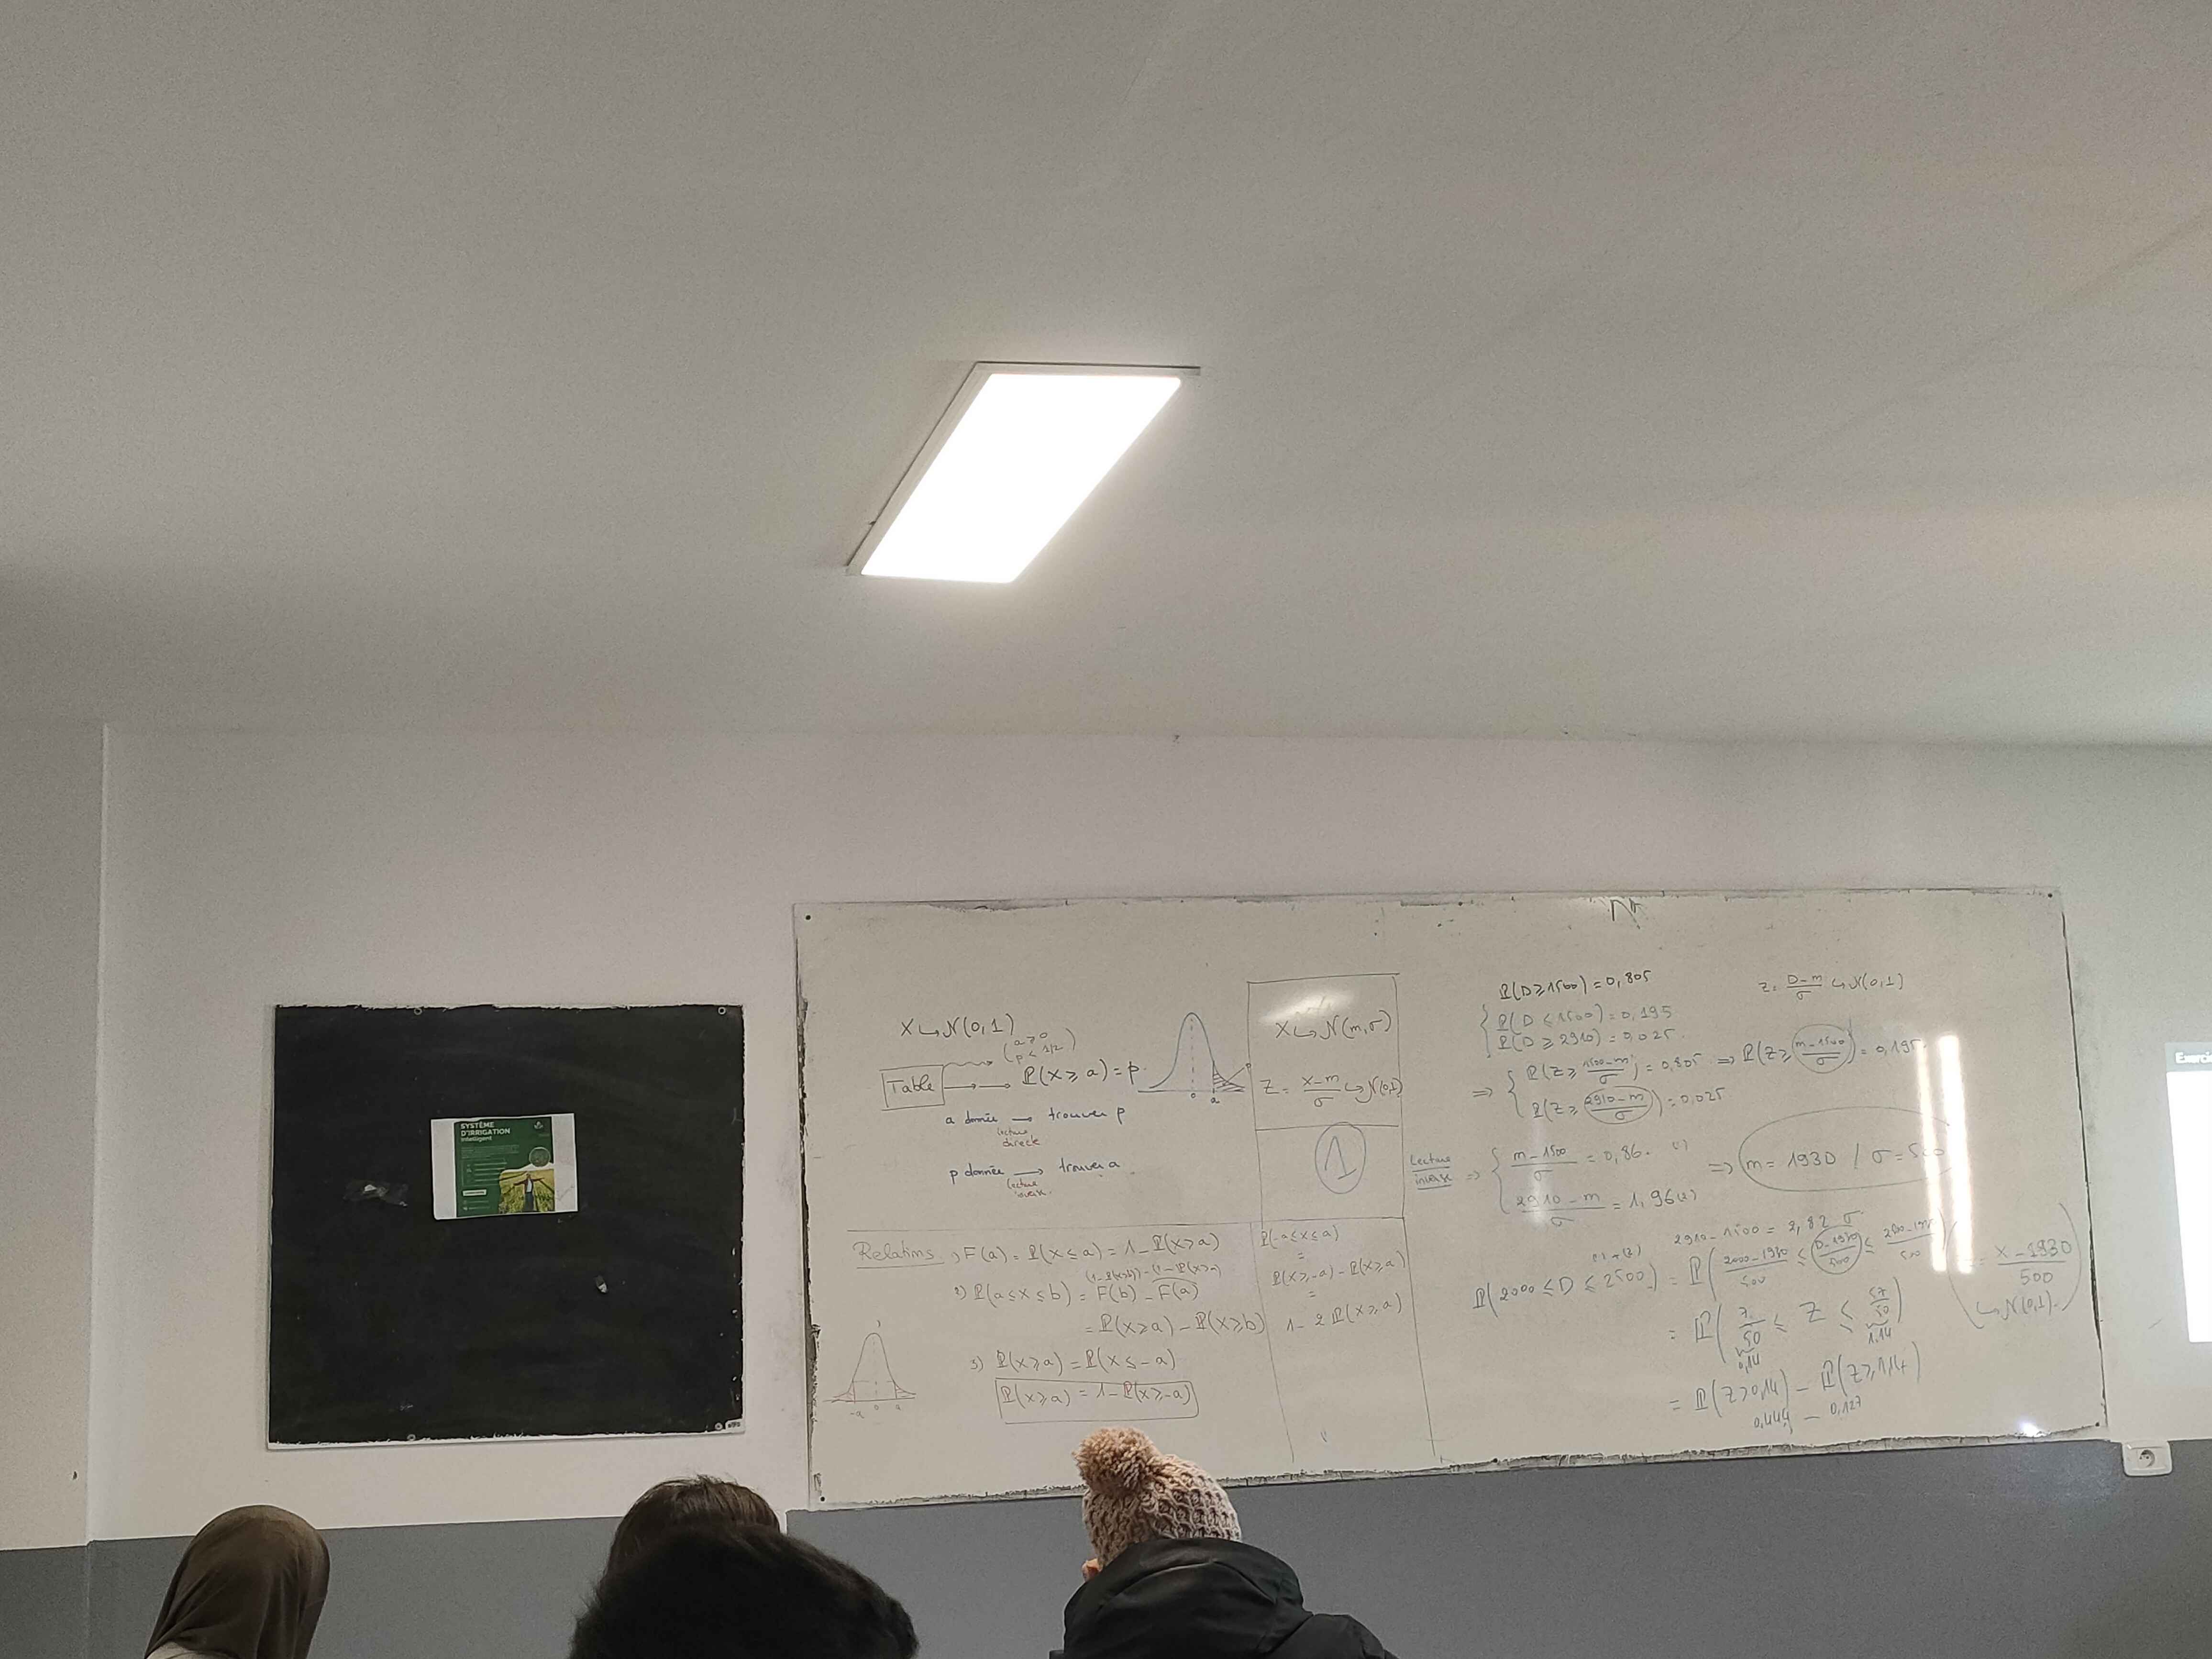 SYSTÈME
D'IRRIGATION
Intelligent
X ↪ N(0,1)
(a ≥ 0
p < 1/2)
Table → → P(X ≥ a) = p
0 a
a donnée → trouver p
lecture
directe
p donnée → trouver a
lecture
inverse
X ↪ N(m,σ)
Z = (X-m)/σ ↪ N(0,1)
1
Relations 1) F(a) = P(X ≤ a) = 1 - P(X ≥ a)
(1-P(X≥b)) - (1-P(X≥a))
2) P(a ≤ X ≤ b) = F(b) - F(a)
= P(X ≥ a) - P(X ≥ b)
3) P(X ≥ a) = P(X ≤ -a)
P(X ≥ a) = 1 - P(X ≥ -a)
-a 0 a
P(-a ≤ X ≤ a)
=
P(X ≥ -a) - P(X ≥ a)
=
1 - 2 P(X ≥ a)
P(D ≥ 1500) = 0,805
Z = (D-m)/σ ↪ N(0,1)
P(D ≤ 1500) = 0,195
P(D ≥ 2910) = 0,025
⇒ { P(Z ≥ (1500-m)/σ) = 0,805 ⇒ P(Z ≥ (m-1500)/σ) = 0,195
P(Z ≥ (2910-m)/σ) = 0,025
Lecture
inverse
⇒ { (m-1500)/σ = 0,86 (1)
(2910-m)/σ = 1,96 (2)
⇒ m = 1930 / σ = 500
(1)+(2) 2910-1500 = 2,82 σ
P(2000 ≤ D ≤ 2500) = P((2000-1930)/500 ≤ (D-1930)/500 ≤ (2500-1930)/500)
= (X-1930)/500
↪ N(0,1)
= P(7/50 ≤ Z ≤ 57/50)
0,14 1,14
= P(Z ≥ 0,14) - P(Z ≥ 1,14)
0,444 - 0,127
Exerci